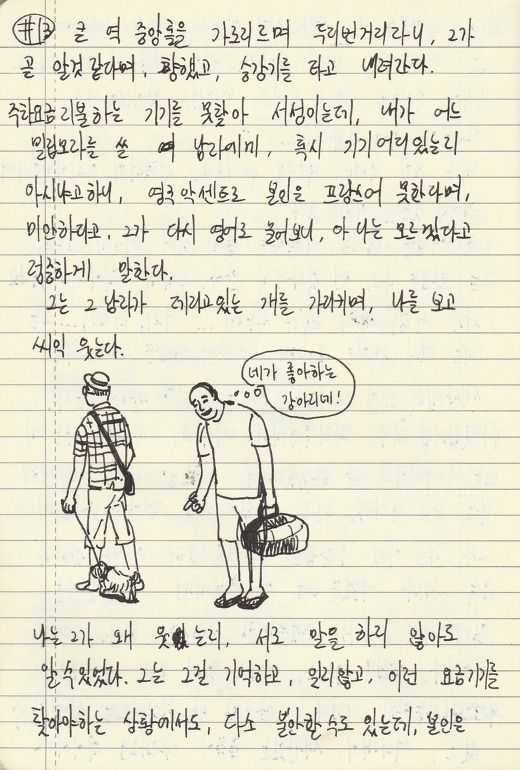 #13 큰 역 중앙홀을 가로지르며 두리번거리다니, 그가
곧 알것 같다며, 향했고, 승강기를 타고 내려간다.
주차요금 지불하는 기기를 못찾아 서성이는데, 내가 어느
밀짚모자를 쓴 남자에게, 혹시 기기 어디있는지
아시냐고하니, 영국 악센트로 본인은 프랑스어 못한다며,
미안하다고, 그가 다시 영어로 물어보니, 아 나는 모르겠다고
덩충하게 말한다.
그는 그 남자가 데리고있는 개를 가리키며, 나를 보고
씨익 웃는다.
네가 좋아하는
강아지네!
나는 그가 왜 웃는지, 서로 말을 하지 않아도
알 수 있었다. 그는 그걸 기억하고, 잊지않고, 이런 요금기기를
찾아야하는 상황에서도, 다소 불안할 수도 있는데, 본인은